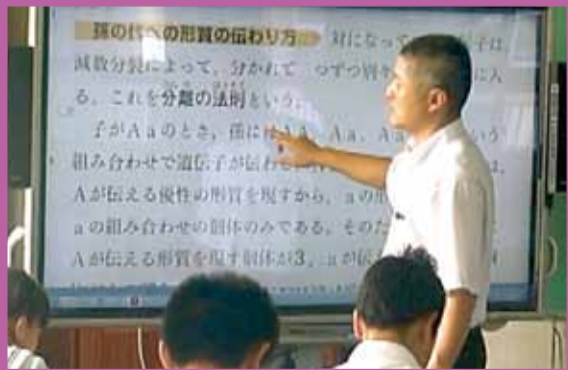 孫の代への形質の伝わり方 対になって 子は、
減数分裂によって、分かれて つずつ別々 に入
る。これを分離の法則という。
子がAaのとき、孫には AA、Aa、Aa いう
組み合わせで遺伝子が伝わる は、
Aが伝える優性の形質を現すから、aの形
aの組み合わせの個体のみである。そのた
Aが伝える形質を現す個体が3、aが伝